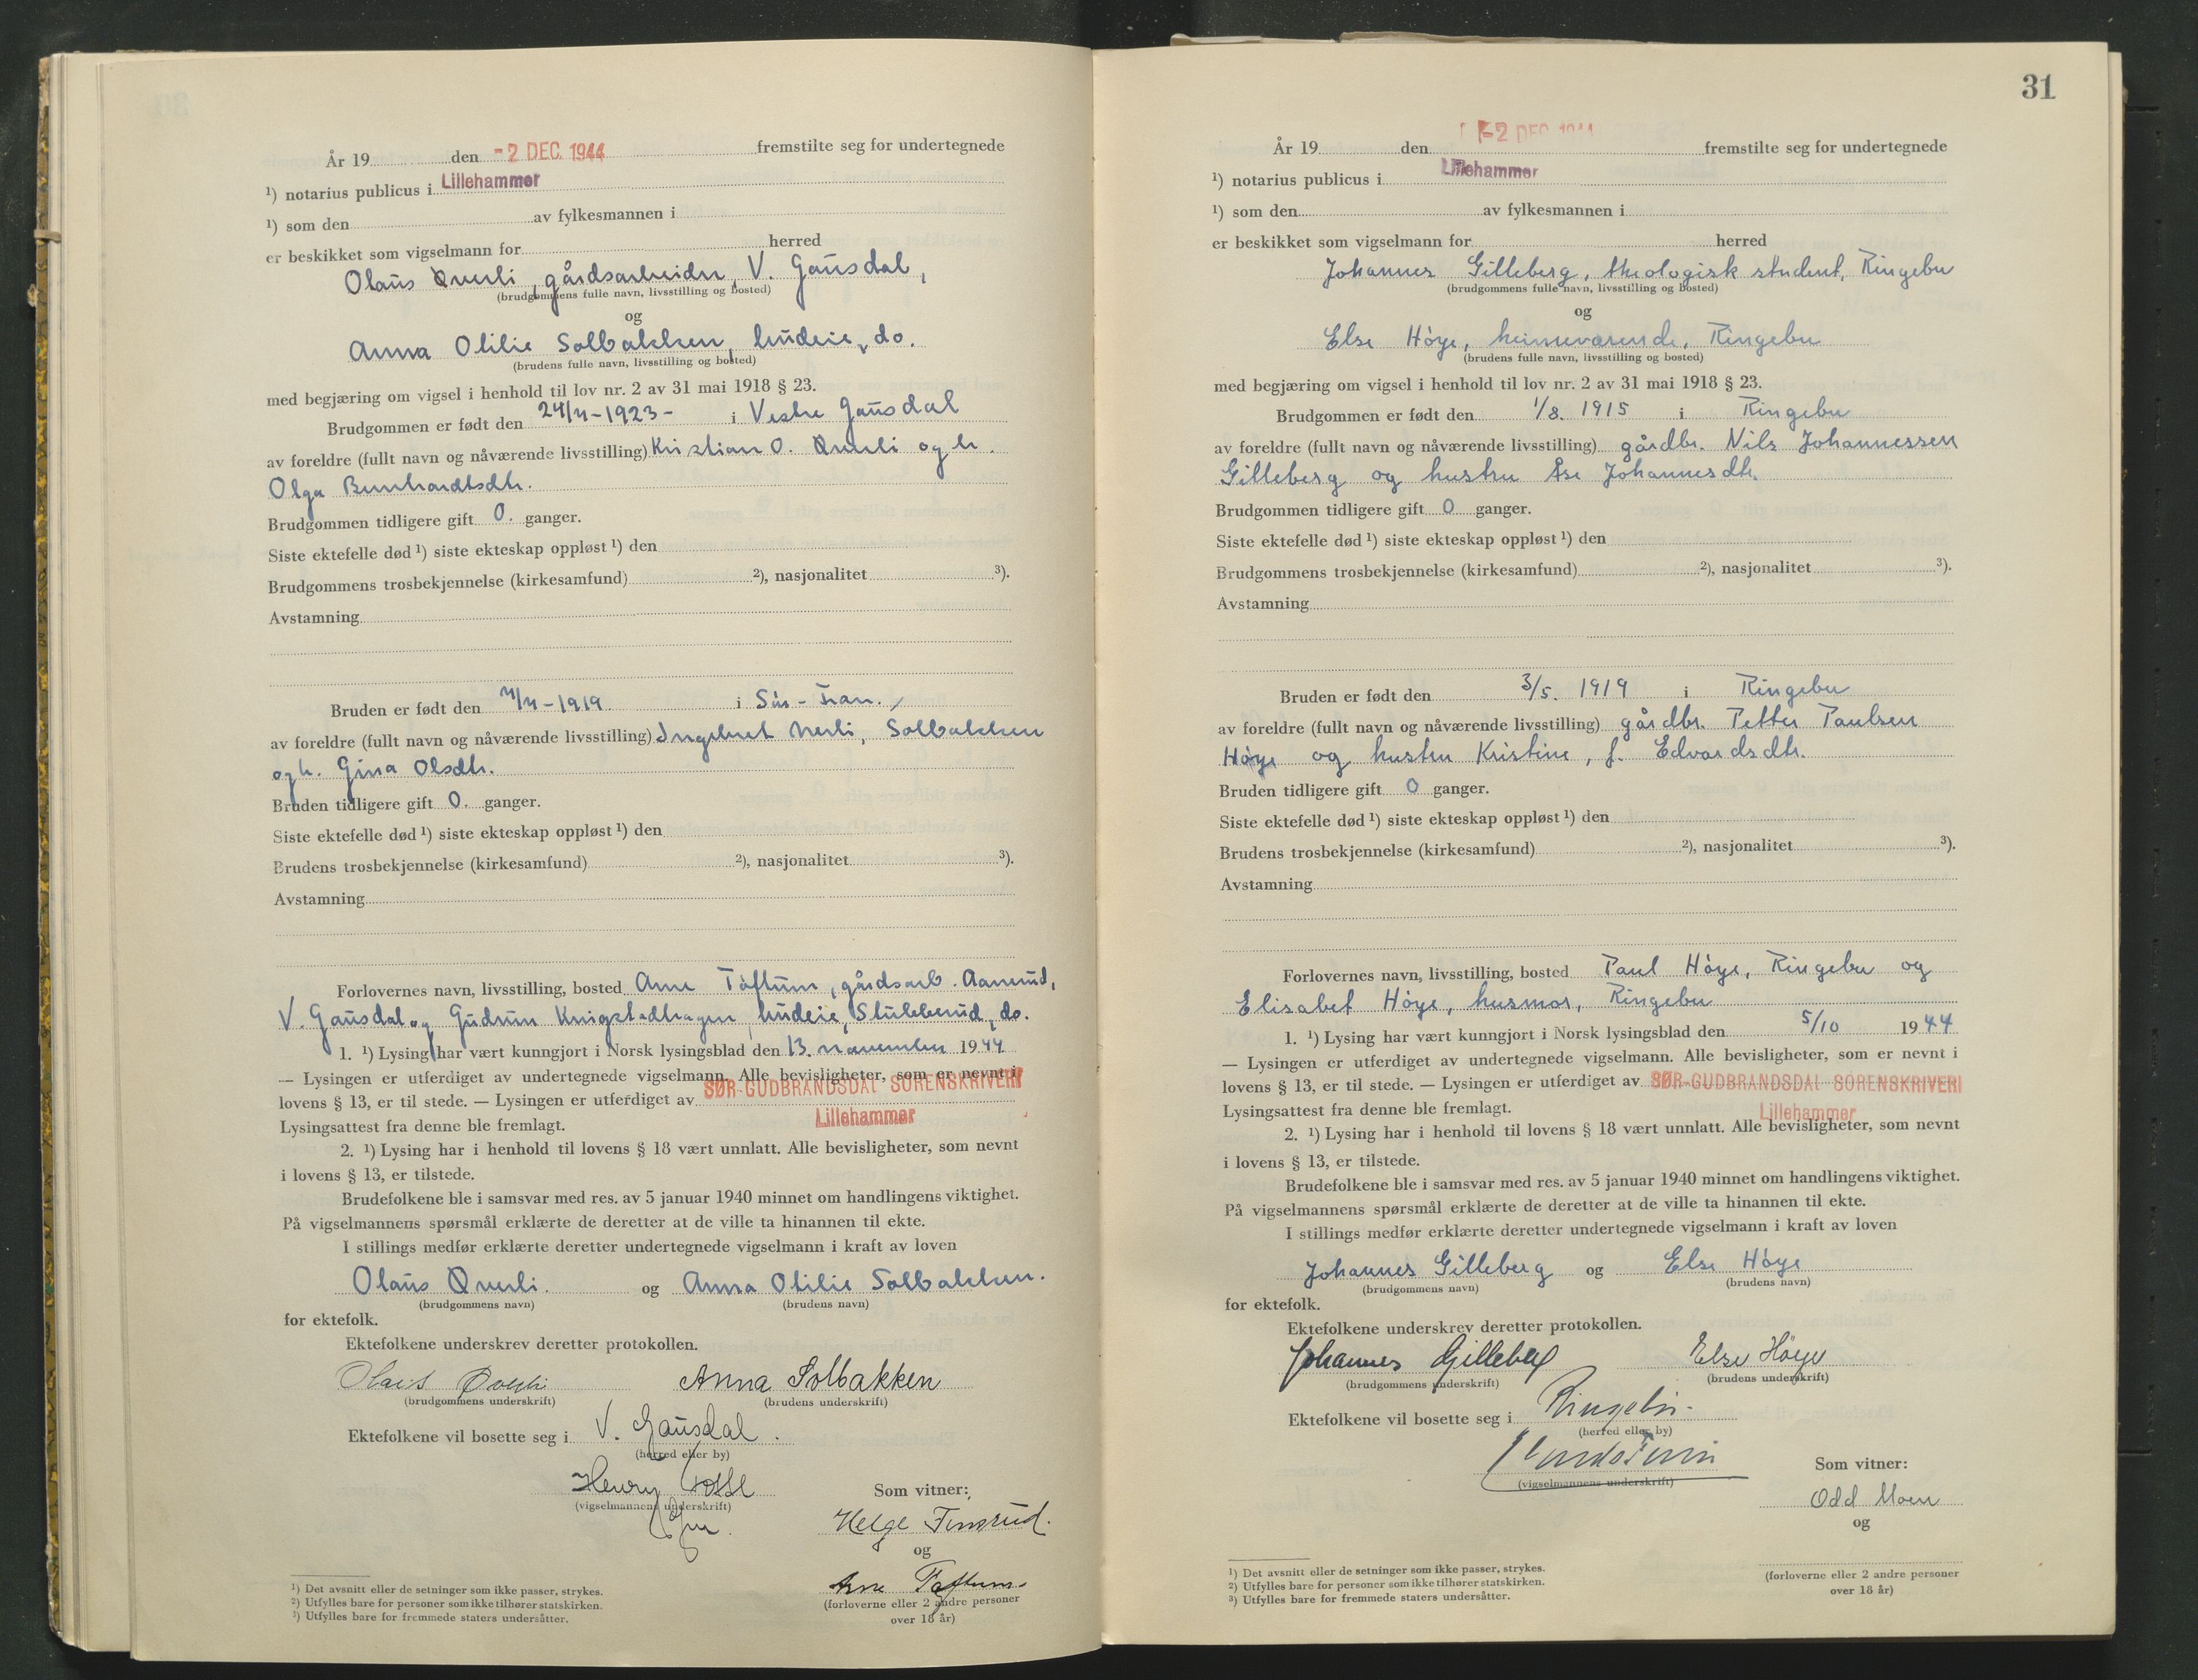 År 19 den -2 DEC. 1944 fremstilte seg for undertegnede
¹) notarius publicus i Lillehammer
¹) som den av fylkesmannen i
er beskikket som vigselmann for herred
Olaus Øverli, gårdsarbeider, V. Gausdal,
(brudgommens fulle navn, livsstilling og bosted)
og
Anna Otilie Solbakken, budeie, do.
(brudens fulle navn, livsstilling og bosted)
med begjæring om vigsel i henhold til lov nr. 2 av 31 mai 1918 § 23.
Brudgommen er født den 24/4-1923- i Vestre Gausdal
av foreldre (fullt navn og nåværende livsstilling) Kristian O. Øverli og h.
Olga Bernhardtsdtr.
Brudgommen tidligere gift 0. ganger.
Siste ektefelle død ¹) siste ekteskap oppløst ¹) den
Brudgommens trosbekjennelse (kirkesamfund) ²), nasjonalitet ³).
Avstamning
Bruden er født den 4/4-1919 i Sør-Fron.
av foreldre (fullt navn og nåværende livsstilling) Ingebret Solbakken
og h. Gina Olsdtr.
Bruden tidligere gift 0. ganger.
Siste ektefelle død ¹) siste ekteskap oppløst ¹) den
Brudens trosbekjennelse (kirkesamfund) ²), nasjonalitet ³).
Avstamning
Forlovernes navn, livsstilling, bosted Arne Tøftum, gårdsarb. Aamrud,
V. Gausdal og Gudrun Krigstadhagen, budeie, Stubberud, do.
1. ¹) Lysing har vært kunngjort i Norsk lysingsblad den 13. november 1944
— Lysingen er utferdiget av undertegnede vigselmann. Alle bevisligheter, som er nevnt i
lovens § 13, er til stede. — Lysingen er utferdiget av SØR-GUDBRANDSDAL SORENSKRIVERI
Lysingsattest fra denne ble fremlagt. Lillehammer
2. ¹) Lysing har i henhold til lovens § 18 vært unnlatt. Alle bevisligheter, som nevnt
i lovens § 13, er tilstede.
Brudefolkene ble i samsvar med res. av 5 januar 1940 minnet om handlingens viktighet.
På vigselmannens spørsmål erklærte de deretter at de ville ta hinannen til ekte.
I stillings medfør erklærte deretter undertegnede vigselmann i kraft av loven
Olaus Øverli. og Anna Otilie Solbakken.
(brudgommens navn) (brudens navn)
for ektefolk.
Ektefolkene underskrev deretter protokollen.
Olaus Øverli Anna Solbakken
(brudgommens underskrift) (brudens underskrift)
Ektefolkene vil bosette seg i V. Gausdal.
(herred eller by)
Henry
(vigselmannens underskrift)
Som vitner:
Helge Finsrud.
og
Arne Tøftum.
(forloverne eller 2 andre personer
over 18 år)
¹) Det avsnitt eller de setninger som ikke passer, strykes.
²) Utfylles bare for personer som ikke tilhører statskirken.
³) Utfylles bare for fremmede staters undersåtter.
31
År 19 den -2 DEC. 1944 fremstilte seg for undertegnede
¹) notarius publicus i Lillehammer
¹) som den av fylkesmannen i
er beskikket som vigselmann for herred
Johannes Gilleberg, theologisk student, Ringebu
(brudgommens fulle navn, livsstilling og bosted)
og
Else Høye, heimeværende, Ringebu
(brudens fulle navn, livsstilling og bosted)
med begjæring om vigsel i henhold til lov nr. 2 av 31 mai 1918 § 23.
Brudgommen er født den 1/8. 1915 i Ringebu
av foreldre (fullt navn og nåværende livsstilling) gårdbr. Nils Johannessen
Gilleberg og hustru Åse Johannesdtr.
Brudgommen tidligere gift 0 ganger.
Siste ektefelle død ¹) siste ekteskap oppløst ¹) den
Brudgommens trosbekjennelse (kirkesamfund) ²), nasjonalitet ³).
Avstamning
Bruden er født den 3/5. 1919 i Ringebu
av foreldre (fullt navn og nåværende livsstilling) gårdbr. Petter Paulsen
Høye og hustru Kristine, f. Edvardsdtr.
Bruden tidligere gift 0 ganger.
Siste ektefelle død ¹) siste ekteskap oppløst ¹) den
Brudens trosbekjennelse (kirkesamfund) ²), nasjonalitet ³).
Avstamning
Forlovernes navn, livsstilling, bosted Paul Høye, Ringebu og
Elisabet Høye, husmor, Ringebu
1. ¹) Lysing har vært kunngjort i Norsk lysingsblad den 5/10 1944
— Lysingen er utferdiget av undertegnede vigselmann. Alle bevisligheter, som er nevnt i
lovens § 13, er til stede. — Lysingen er utferdiget av SØR-GUDBRANDSDAL SORENSKRIVERI
Lysingsattest fra denne ble fremlagt. Lillehammer
2. ¹) Lysing har i henhold til lovens § 18 vært unnlatt. Alle bevisligheter, som nevnt
i lovens § 13, er tilstede.
Brudefolkene ble i samsvar med res. av 5 januar 1940 minnet om handlingens viktighet.
På vigselmannens spørsmål erklærte de deretter at de ville ta hinannen til ekte.
I stillings medfør erklærte deretter undertegnede vigselmann i kraft av loven
Johannes Gilleberg og Else Høye
(brudgommens navn) (brudens navn)
for ektefolk.
Ektefolkene underskrev deretter protokollen.
Johannes Gilleberg Else Høye
(brudgommens underskrift) (brudens underskrift)
Ektefolkene vil bosette seg i Ringebu
(herred eller by)
(vigselmannens underskrift)
Som vitner:
Odd Moen
og
(forloverne eller 2 andre personer
over 18 år)
¹) Det avsnitt eller de setninger som ikke passer, strykes.
²) Utfylles bare for personer som ikke tilhører statskirken.
³) Utfylles bare for fremmede staters undersåtter.